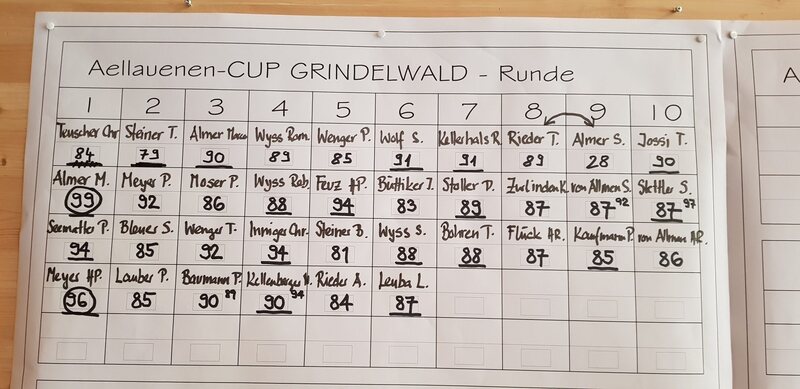 Aellauenen-CUP GRINDELWALD - Runde
1 2 3 4 5 6 7 8 9 10
Teuscher Chr. Steiner T. Almer Marco Wyss Rom. Wenger P. Wolf S. Kellerhals R. Rieder T. Almer S. Jossi T.
84 79 90 89 85 91 91 89 28 90
Almer M. Meyer P. Moser P. Wyss Rob. Feuz HP. Büttiker J. Staller D. Zurlinden K. von Allmen S. Stettler S.
99 92 86 88 94 83 89 87 87 92 87 97
Seematter P. Bleuer S. Wenger T. Inniger Chr. Steiner B. Wyss S. Bohren T. Flück HR. Kaufmann P. von Allmen HR.
94 85 92 94 81 88 88 87 85 86
Meyer HP. Lauber P. Baumann P. Kellenberger Rieder A. Leuba L.
96 85 90 89 90 94 84 87
A